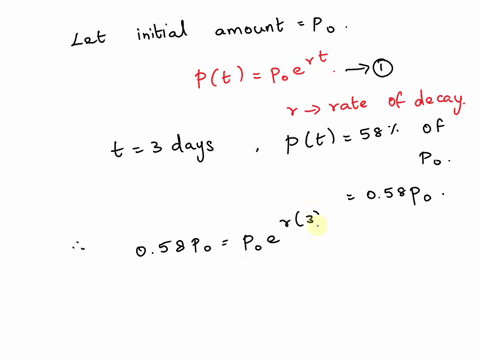 Let initial amount = P₀.
P(t) = P₀e^{rt}. → ①
r → rate of decay.
t = 3 days , P(t) = 58% of P₀.
= 0.58P₀.
∴ 0.58P₀ = P₀e^{r(3)}